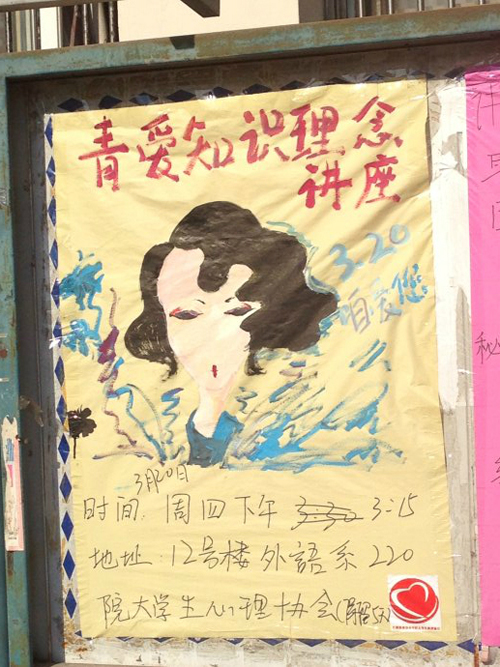 青爱知识理念
讲座
3.20
咱爱您
3月20日
时间: 周四下午 3:15
地址: 12号楼外語系220
院大学生心理协会